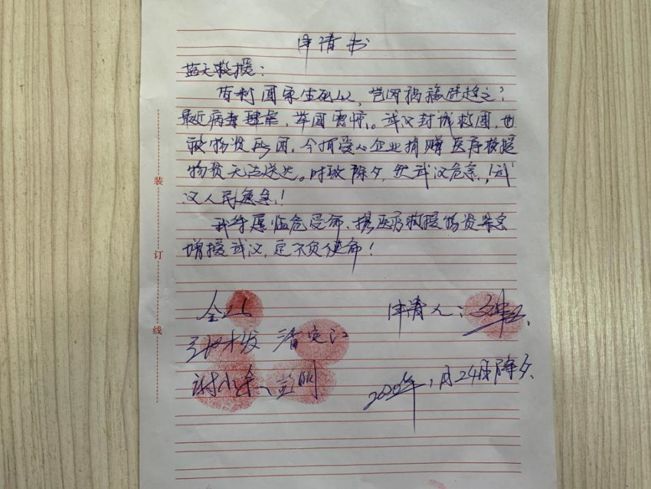 申请书
蓝天救援：
苟利国家生死以，岂因祸福避趋之？
最近病毒肆虐，举国震惊。武汉封城救国，也
被物资所困，今有爱心企业捐赠医疗救援
物资无法送达。时致除夕，然武汉危急！武
汉人民危急！
我等愿临危受命，携医疗救援物资紧急
增援武汉，定不负使命！
申请人：
潘定江
彭明
2020年1月24日除夕
装
订
线